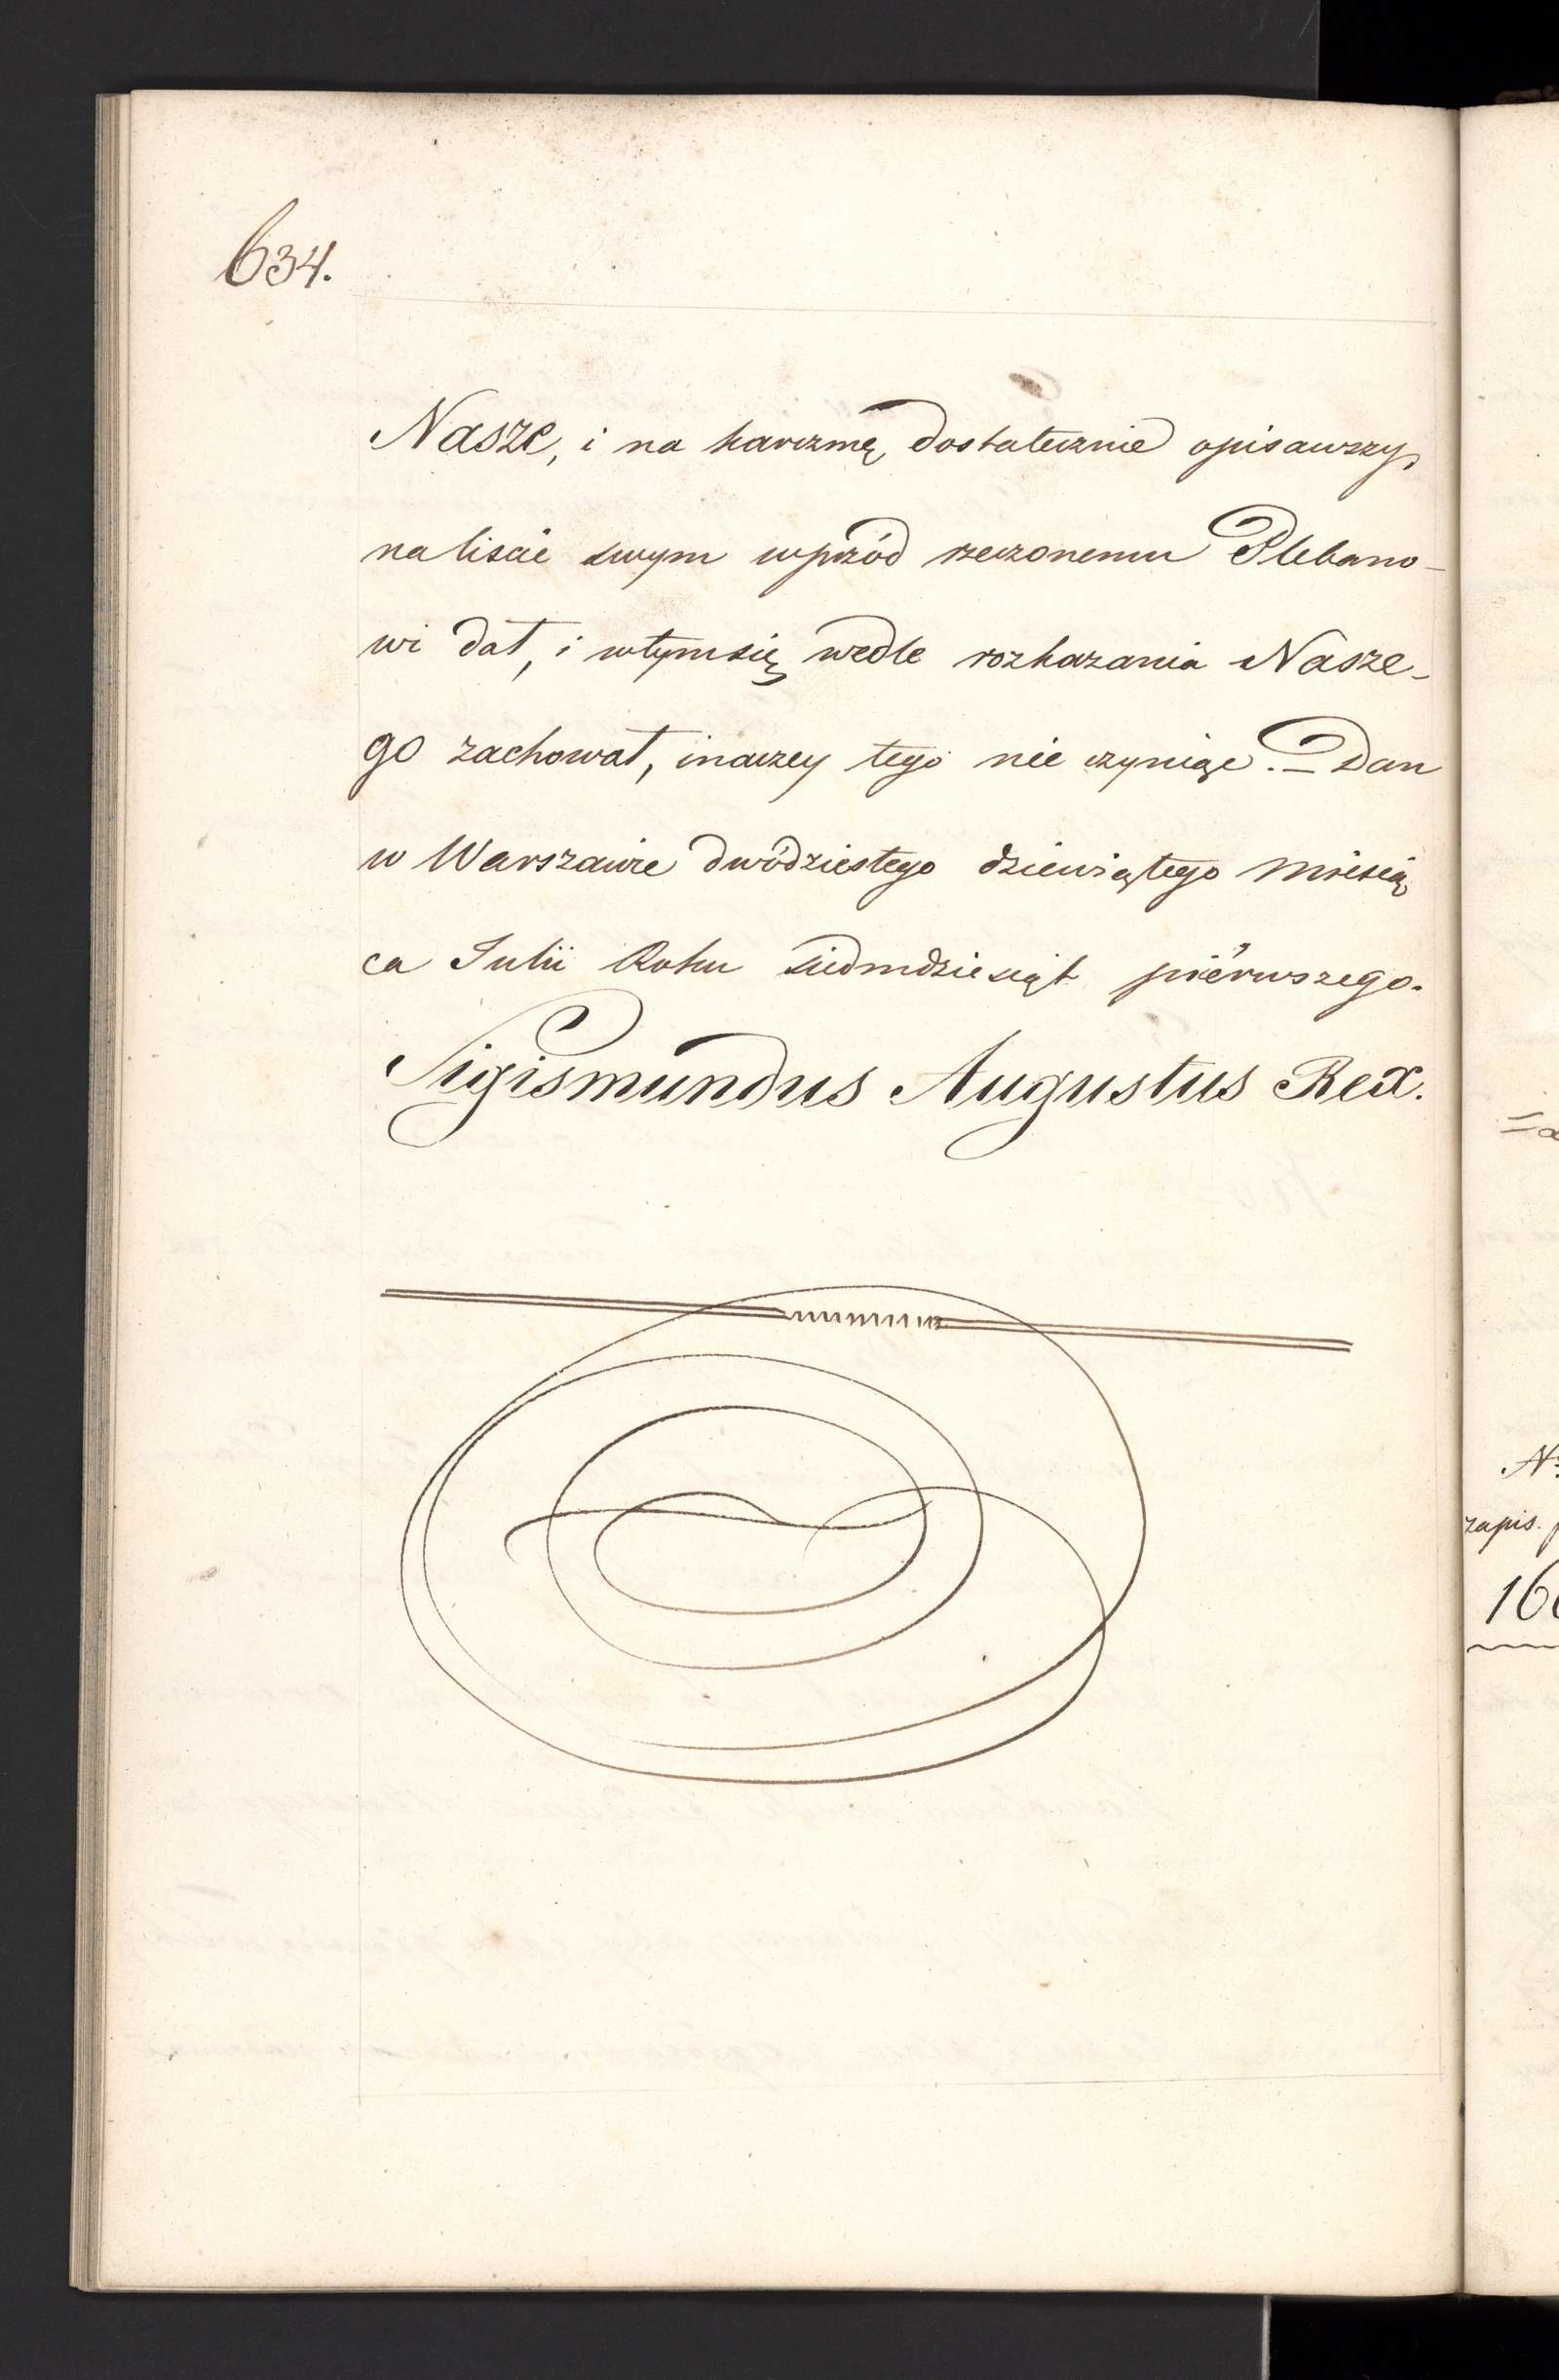 634.
Nasze, i na karczmę dostatecznie opisawszy,
na liście swym wprzód rzeczonemu Plebano-
wi dał, i wtymsię wedle rozkazania Nasze-
go zachował, inaczey tego nie czyniąc. – Dan
w Warszawie dwódziestego dziewiątego Miesią
ca Iulii Roku siedmdziesiąt piérwszego.
Sigismundus Augustus Rex.
zapis.